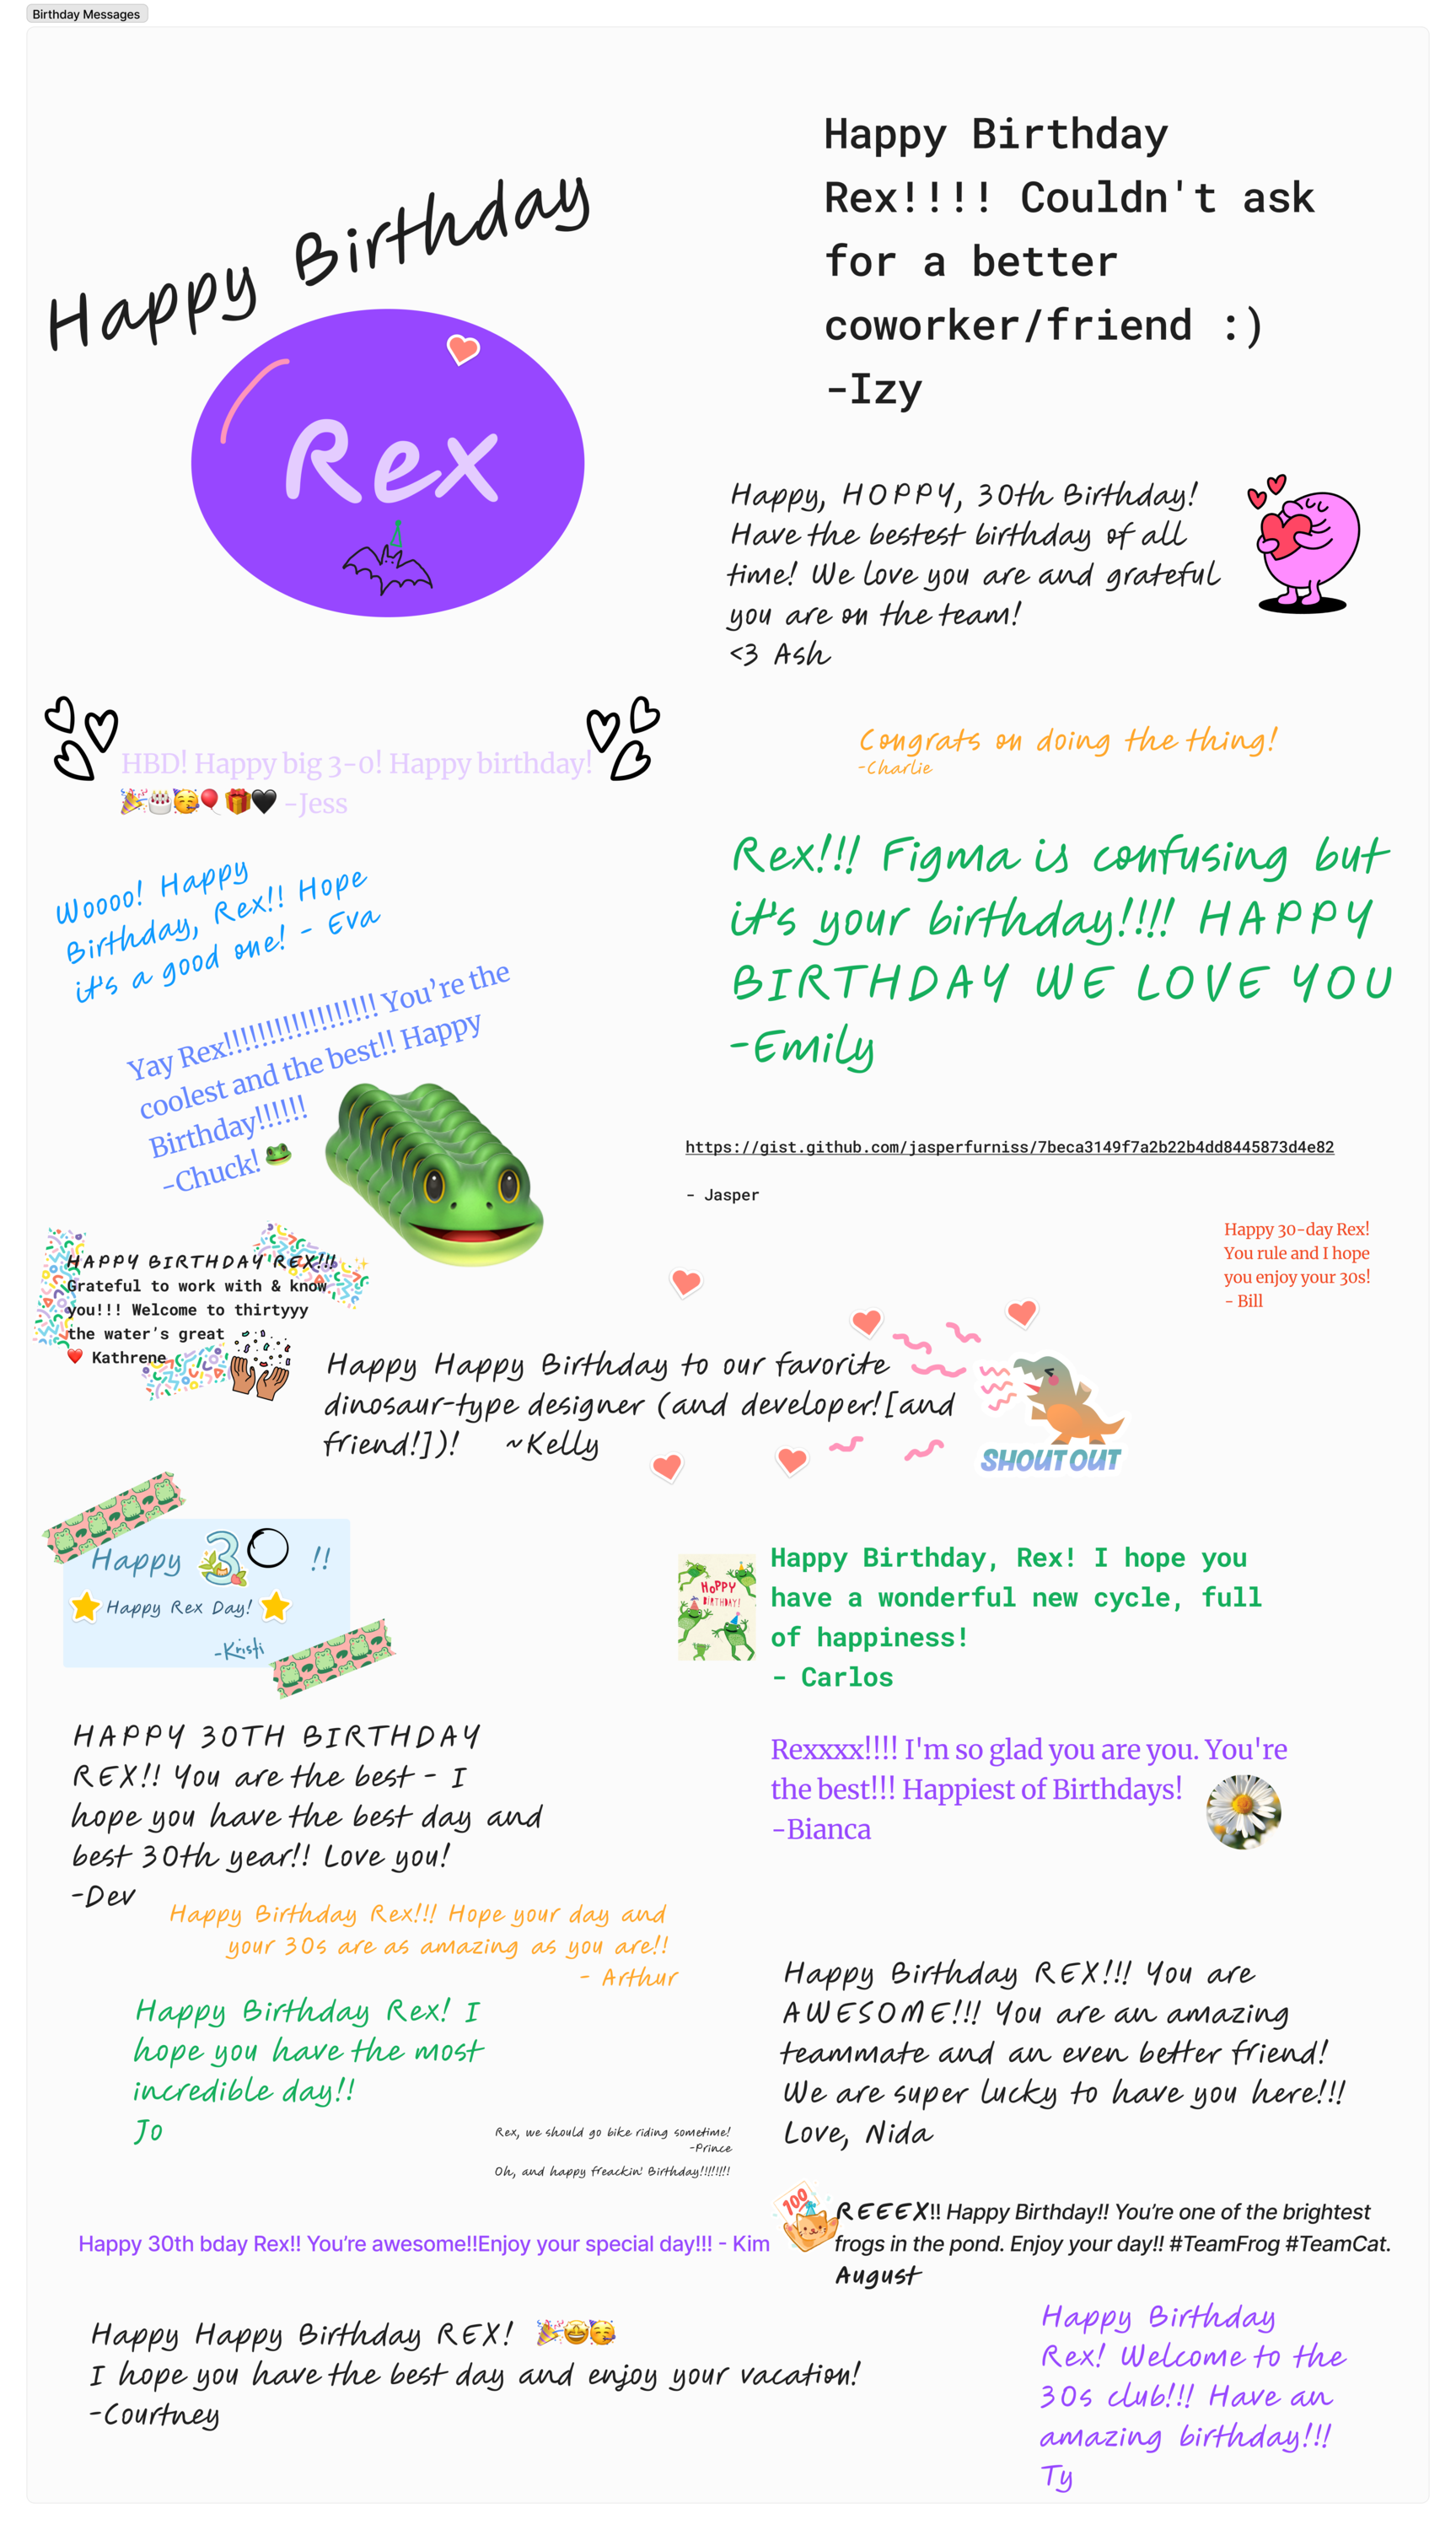 Birthday Messages
Happy Birthday
Rex
Happy Birthday
Rex!!!! Couldn't ask
for a better
coworker/friend :)
-Izy
Happy, HOPPY, 30th Birthday!
Have the bestest birthday of all
time! We love you are and grateful
you are on the team!
<3 Ash
HBD! Happy big 3-0! Happy birthday!
🎉🎂🥳🎈🎁🖤 -Jess
Congrats on doing the thing!
-Charlie
Woooo! Happy
Birthday, Rex!! Hope
it's a good one! - Eva
Rex!!! Figma is confusing but
it's your birthday!!!! HAPPY
BIRTHDAY WE LOVE YOU
-Emily
Yay Rex!!!!!!!!!!!!!!!!!!! You're the
coolest and the best!! Happy
Birthday!!!!!!
-Chuck! 🐸
https://gist.github.com/jasperfurniss/7beca3149f7a2b22b4dd8445873d4e82
- Jasper
Happy 30-day Rex!
You rule and I hope
you enjoy your 30s!
- Bill
HAPPY BIRTHDAY REX!!!
Grateful to work with & know
you!!! Welcome to thirtyyy
the water's great
❤️ Kathrene
Happy Happy Birthday to our favorite
dinosaur-type designer (and developer![and
friend!])! ~Kelly
SHOUT OUT
Happy 30 !!
Happy Rex Day!
-Kristi
HOPPY
BIRTHDAY!
Happy Birthday, Rex! I hope you
have a wonderful new cycle, full
of happiness!
- Carlos
HAPPY 30TH BIRTHDAY
REX!! You are the best - I
hope you have the best day and
best 30th year!! Love you!
-Dev
Rexxxx!!!! I'm so glad you are you. You're
the best!!! Happiest of Birthdays!
-Bianca
Happy Birthday Rex!!! Hope your day and
your 30s are as amazing as you are!!
- Arthur
Happy Birthday Rex! I
hope you have the most
incredible day!!
Jo
Happy Birthday REX!!! You are
AWESOME!!! You are an amazing
teammate and an even better friend!
We are super lucky to have you here!!!
Love, Nida
Rex, we should go bike riding sometime!
-Prince
Oh, and happy freackin' Birthday!!!!!!!!
Happy 30th bday Rex!! You're awesome!!Enjoy your special day!!! - Kim
100
REEEX!! Happy Birthday!! You're one of the brightest
frogs in the pond. Enjoy your day!! #TeamFrog #TeamCat.
August
Happy Happy Birthday REX! 🎉🤩🥳
I hope you have the best day and enjoy your vacation!
-Courtney
Happy Birthday
Rex! Welcome to the
30s club!!! Have an
amazing birthday!!!
Ty